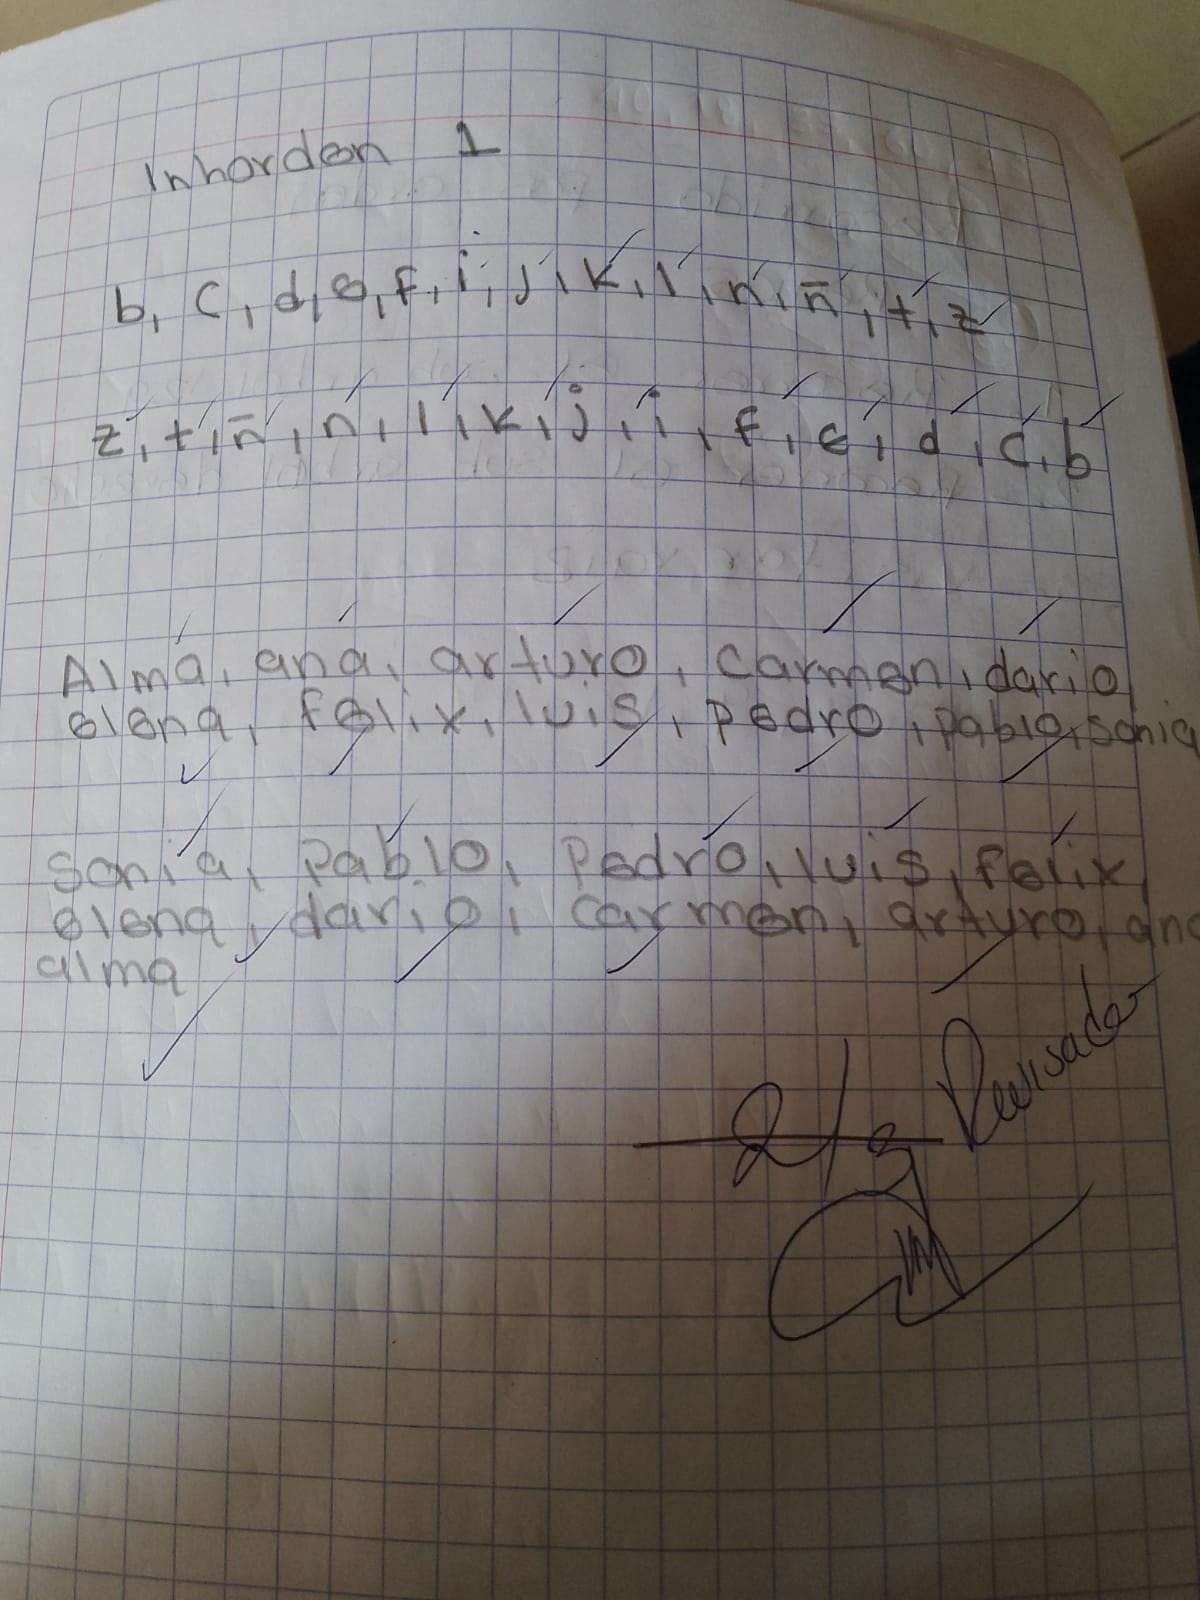 Inhorden 1
b, c, d, e, f, i, j, k, l, n, ñ, t, z
z, t, ñ, n, l, k, j, i, f, e, d, c, b
Alma, ana, arturo, carmen, dario
elena, felix, luis, pedro, pablo, sonia
Sonia, Pablo, Pedro, luis, felix,
elena, dario, carmen, arturo, ana
alma
Revisado